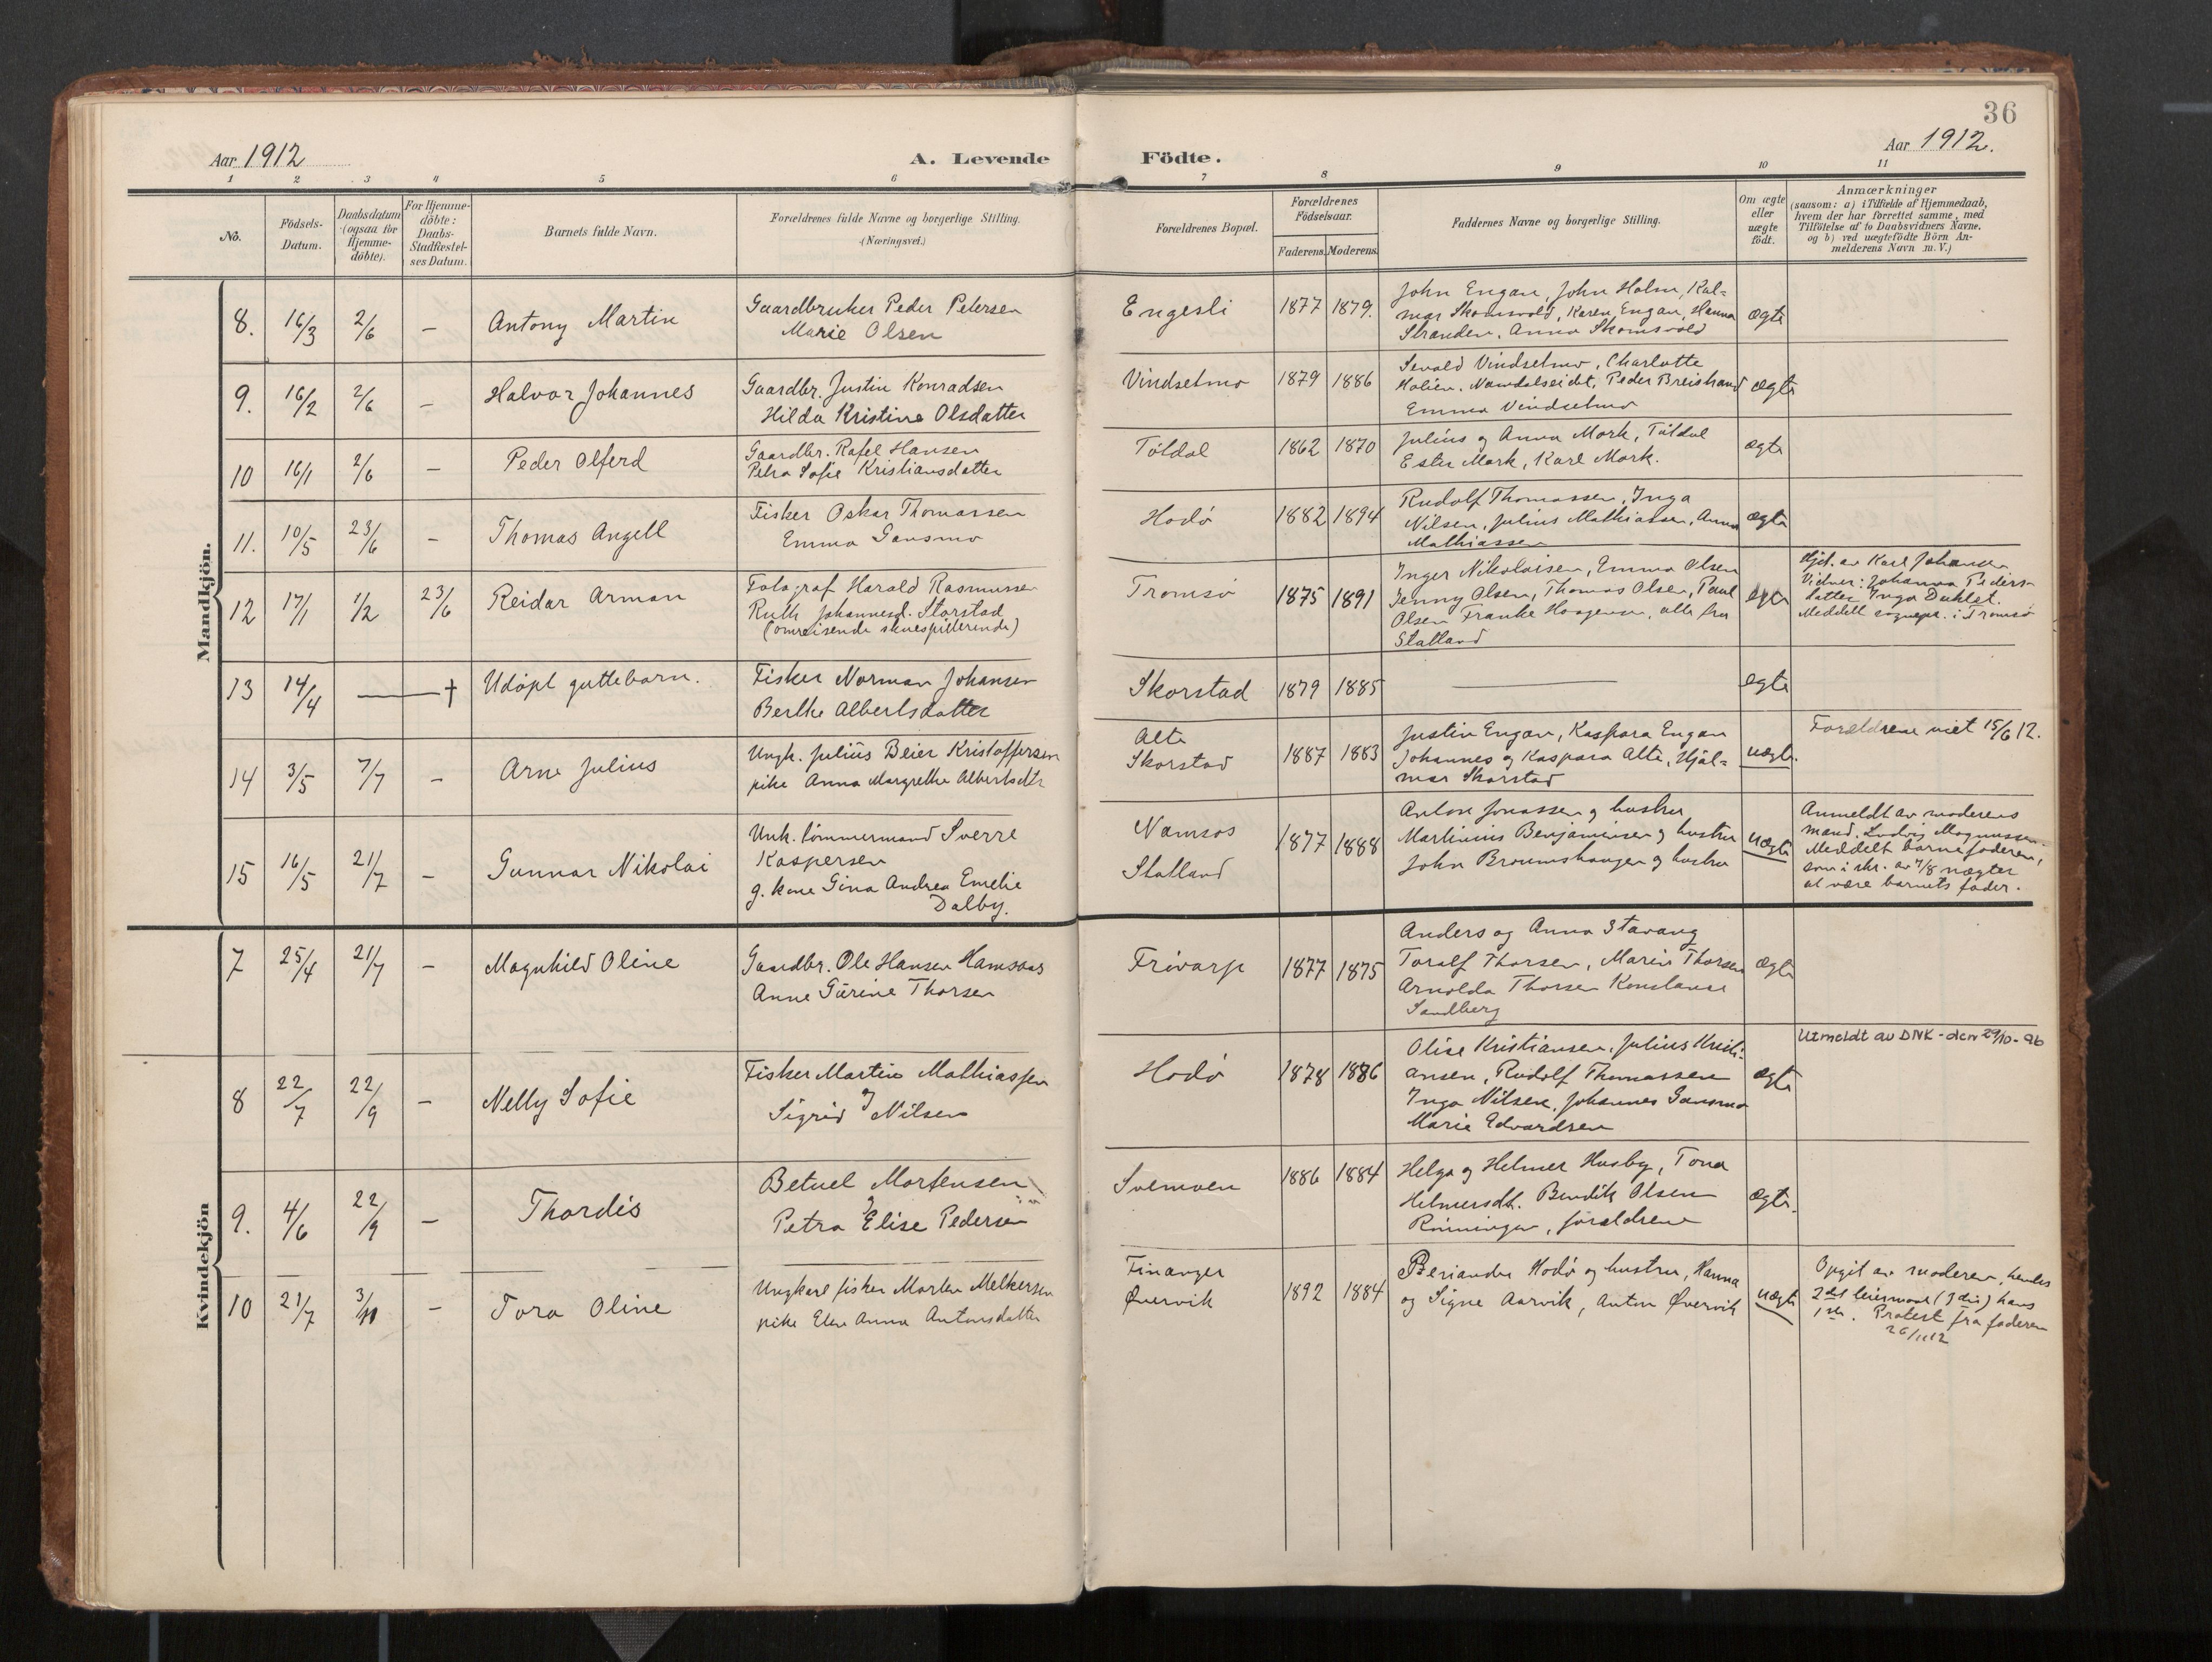 36
Aar 1912
A. Levende
Födte.
Aar 1912.
1 2 3 4 5 6 7 8 9 10 11
No.
Födsels-
Datum.
Daabsdatum
(ogsaa for
Hjemme-
döbte).
For Hjemme-
döbte:
Daabs-
Stadfæstel-
ses Datum.
Barnets fulde Navn.
Forældrenes fulde Navne og borgerlige Stilling.
(Næringsvei.)
Forældrenes Bopæl.
Forældrenes
Födselsaar.
Faderens. Moderens.
Faddernes Navne og borgerlige Stilling.
Om ægte
eller
uægte
födt.
Anmærkninger
(saasom: a) i Tilfælde af Hjemmedaab,
hvem der har forrettet samme, med
Tilföielse af to Daabsvidners Navne.
og b) ved uægtefödte Börn An-
melderens Navn m. V.)
Mandkjön.
8. 16/3 2/6 — Antony Martin
Gaardbruker Peder Petersen
Marie Olsen
Engesli 1877 1879.
John Engan, John Holm, Kal=
mar Skomsvold, Karen Engan, Hanna
Stranden, Anna Skomsvold
ægte
9. 16/2 2/6 — Halvor Johannes
Gaardbr. Justin Konradsen
Hilda Kristine Olsdatter
Vindsetmo 1879 1886
Sevald Vindsetmo, Charlotte
Holien, Namdalseidet, Peder Breistrand
Emma Vindsetmo
ægte
10 16/1 2/6 — Peder Olferd
Gaardbr. Rafel Hansen
Petra Sofie Kristiansdatter
Töldal 1862 1870
Julius og Anna Mork, Töldal
Ester Mork, Karl Mork.
ægte
11. 10/5 23/6 — Thomas Angell
Fisker Oskar Thomassen
Emma Gansmo
Hodö 1882 1894
Rudolf Thomassen, Inga
Nilsen, Julius Mathiassen, Anna
Mathiassen
ægte
12 17/1 1/2 23/6 Reidar Arman
Fotograf Harald Rasmussen
Ruth Johannesd. Storstad
(omreisende skuespillerinde)
Tromsö 1875 1891
Inger Nikolaisen, Emma Olsen
Jenny Olsen, Thomas Olsen, Paul
Olsen Franke Haagensen, alle fra
Statland
egte
Hjd. av Karl Johansen
Vidner: Johanna Peders=
datter Inga Duklet.
Meddelt sognepr. i Tromsö
13 14/4 — † Udöpt guttebarn.
Fisker Norman Johansen
Berthe Albertsdatter
Skorstad 1879 1885 —
egte
14 3/5 7/7 — Arne Julius
Ungk. Julius Beier Kristoffersen
pike Anna Margrethe Albertsdtr
Alte
Skorstad 1887 1883
Justin Engan, Kaspara Engan
Johannes og Kaspara Alte, Hjal=
mar Skorstad
uægte.
Forældrene viet 15/6 12.
15 16/5 21/7 — Gunnar Nikolai
Unk. tömmermand Sverre
Kaspersen
g. kone Gina Andrea Emelie
Dalby.
Namsos
Statland
1877 1888
Anton Jonassen og hustru
Martinius Benjaminsen og hustru
John Bromshaugen og hustru
uægte
Anmeldt av moderens
mand. Ludvig Magnussen.
Meddelt barnefaderen,
som i skr. av 7/8 nægter
at være barnets fader.
Kvindekjön
7 25/4 21/7 — Magnhild Oline
Gaardbr. Ole Hansen Hamsaas
Anne Gürine Thorsen
Frövarp 1877 1875
Anders og Anna Stavang
Toralf Thorsen, Marie Thorsen
Arnolda Thorsen Konstanse
Sandberg
ægte
8 22/7 22/9 — Nelly Sofie
Fisker Martin Mathiassen
og
Sigrid Nilsen
Hodö 1878 1886
Olise Kristiansen, Julius Kristi=
ansen, Rudolf Thomassen
Inga Nilsen, Johannes Gansmo
Marie Edvardsen
ægte
Utmeldt av DNK - den 29/10 - 96
9. 4/6 22/9 — Thordis
Betuel Mortensen
og
Petra Elise Pedersen
Svemoen 1886 1884
Helga og Helmer Husby, Tona
Helmersdt. Bendik Olsen
Rönningen, forældrene
ægte.
10 21/7 3/11 — Tora Oline
Ungkarl fisker Morten Melkersen
pike Elen Anna Antonsdatter
Finanger
Øvervik 1892 1884
Beriander Hodö og hustru, Hanna
og Signe Aarvik, Anton Øvervik
uægte
Opgit av moderen, hendes
2det leiermaal (3die) hans
1ste. Protest fra faderen
26/11 12